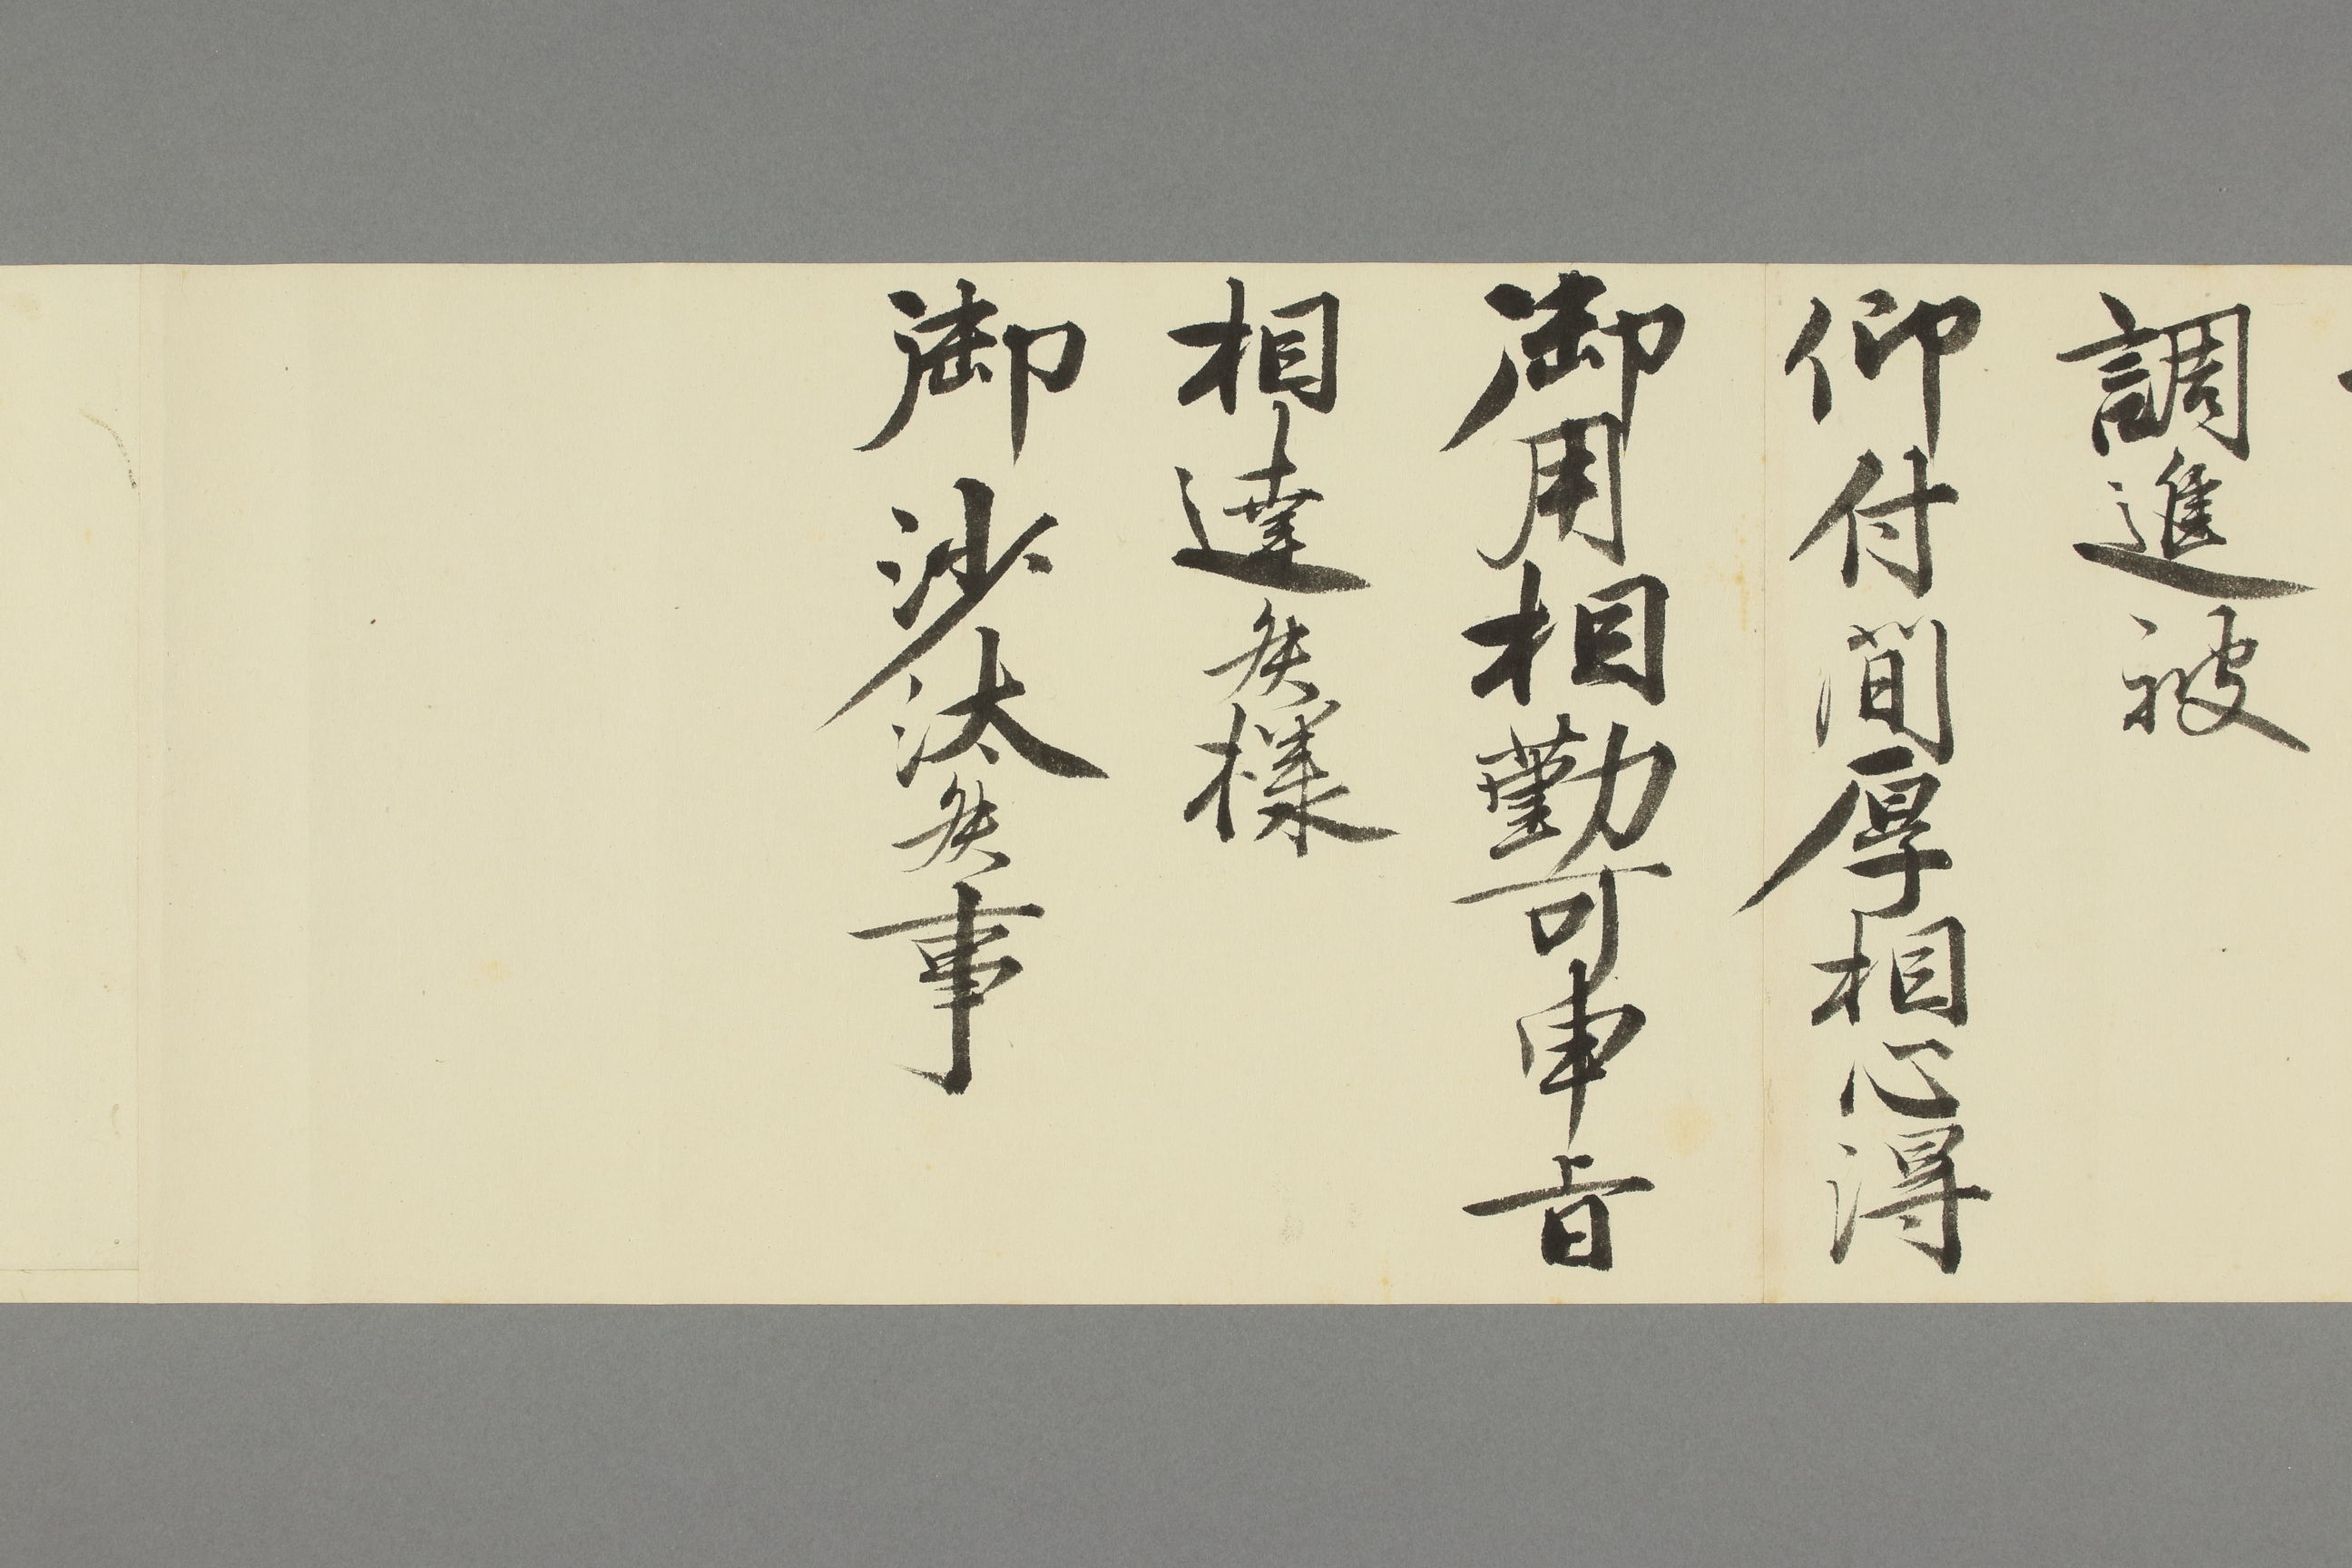 調進被
仰付間厚相心得
御用相勤可申旨
相達候様
御沙汰候事